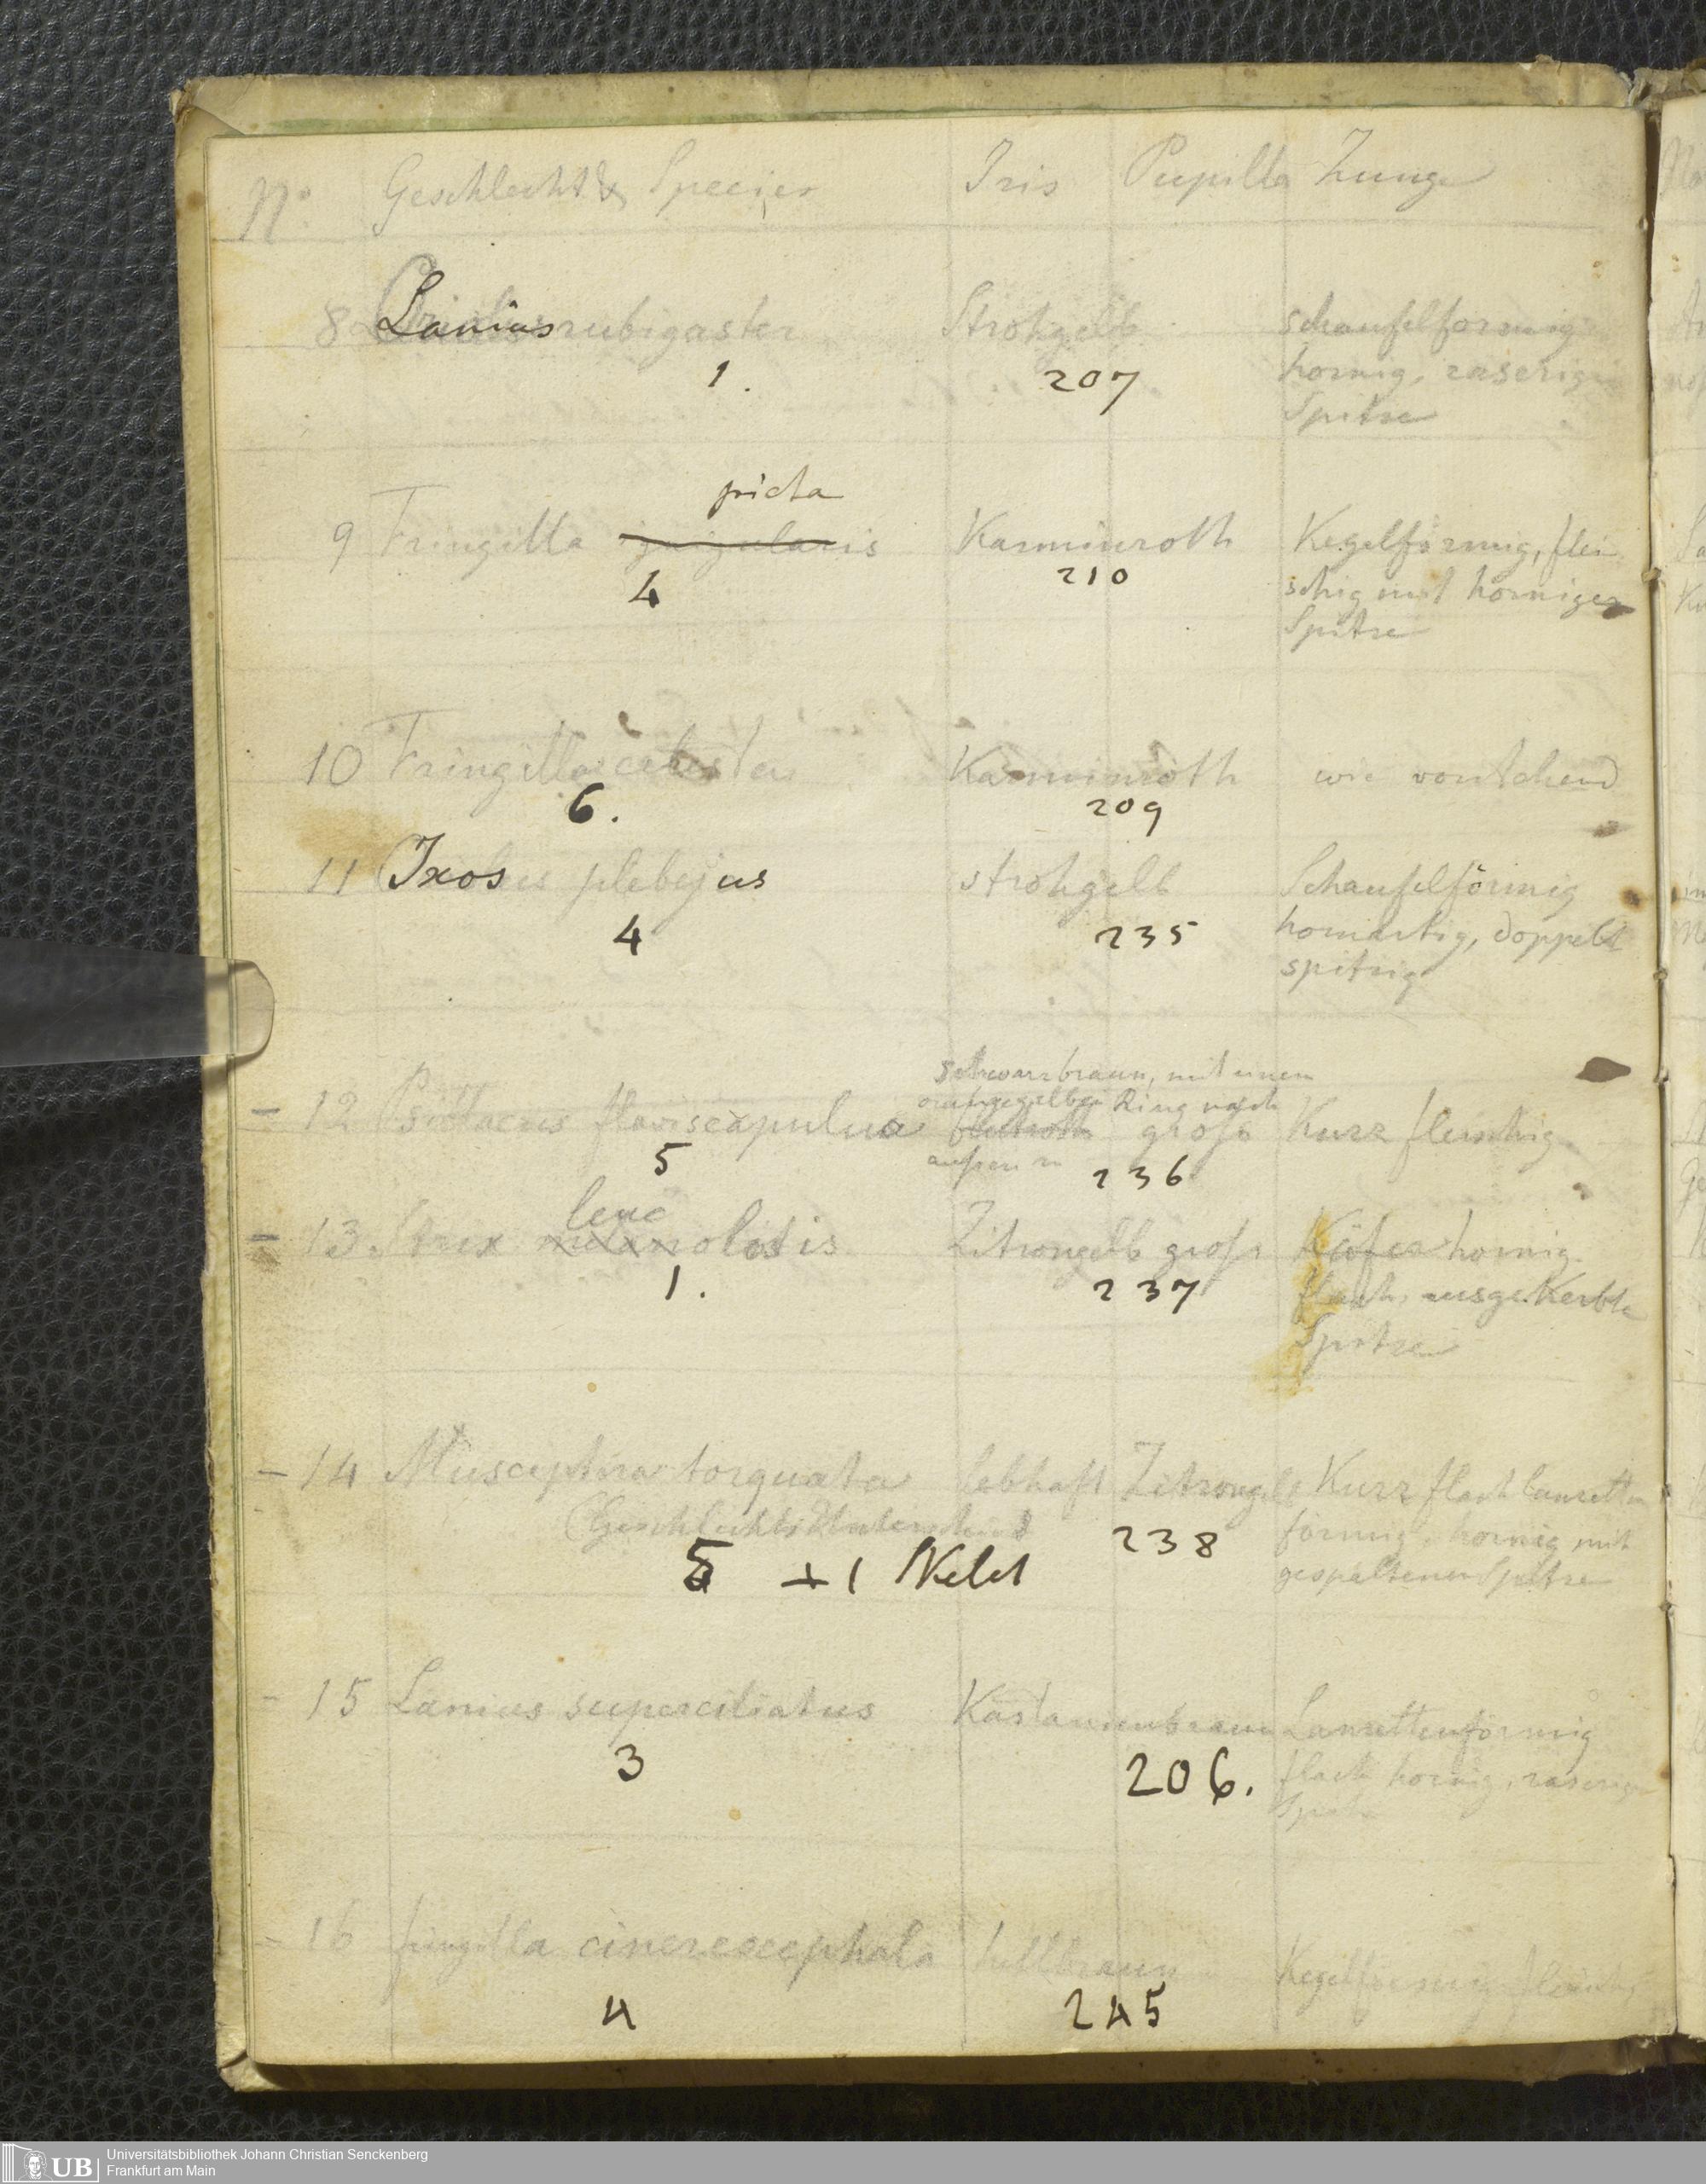 No. Geschlecht & Species Iris Pupilla Zunge
8 Lanius rubigaster Strohgelb schaufelformig
1. 207 hornig, zaserige
Spitze
picta
9 Fringilla jugularis Karminroth Kegelförmig, flei
4 210 schig mit horniger
Spitze
10 Fringilla Karminroth wie vorstehend
6. 209
11 Ixos plebejus strohgelb Schaufelförmig
4 235 hornartig, doppelt
spitzig
schwarzbraun, mit einem
orangegelben Ring nach
- 12 Psittacus flaviscapulus blutroth groß Kurz fleischig
außen
5 236
leuc
- 13. Strix melanolotis Zitrongelb groß Käfer hornig
1. 237 flach, ausgekerbte
Spitze
- 14 Musciptira torquata lebhaft Zitrongelb Kurz flach lanzetten
(Geschlechts Unterschied förmig, hornig mit
5 + 1 Skelet 238 gespaltener Spitze
- 15 Lanius superciliatus Kastanienbraun Lanzettenförmig
3 206. flach hornig, zaserige
Spitze
- 16 fringilla cinereocephala hellbraun Kegelförmig fleischig
4 245
UB Universitätsbibliothek Johann Christian Senckenberg
Frankfurt am Main